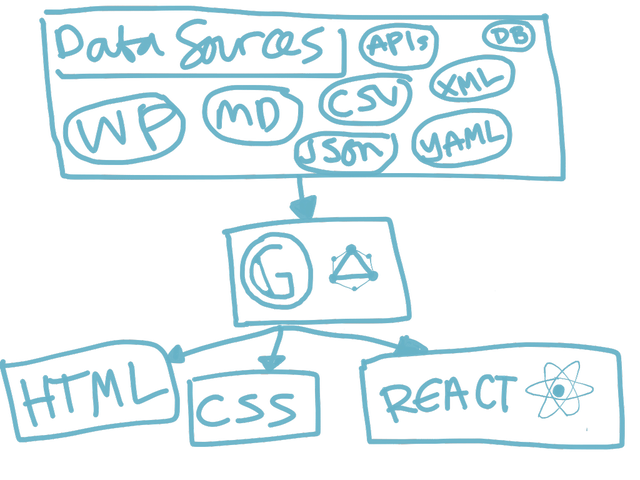 Data Sources
APIs
DB
WP
MD
CSV
XML
Json
YAML
G
HTML
CSS
REACT